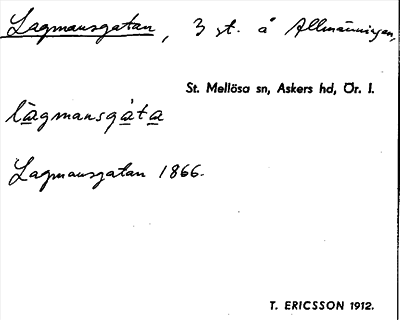 Lagmansgatan, 3 st. å Allmänningen,
St. Mellösa sn, Askers hd, Ör. l.
làgmansgàta
Lagmansgatan 1866.
T. ERICSSON 1912.